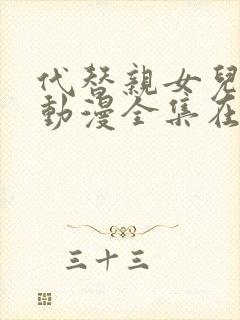 代替親女兒
動漫全集在
三十三